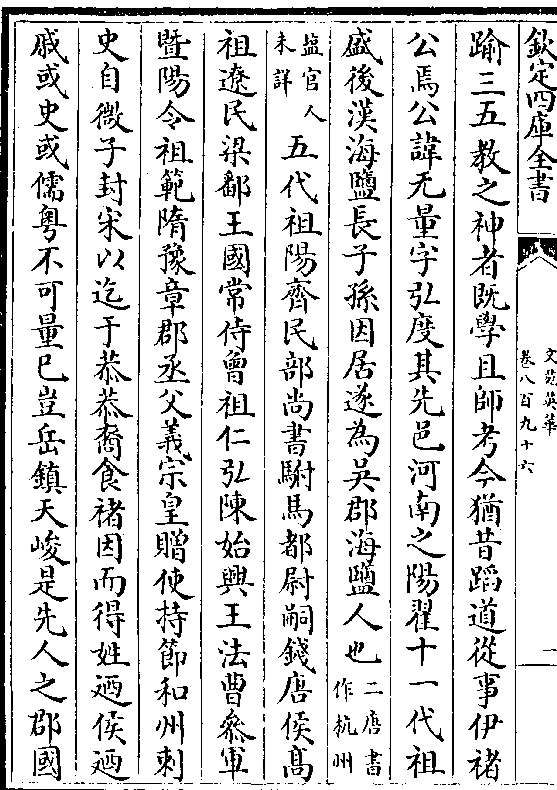 欽定四庫全書
文苑英華
卷八百九十六
一
踰三五教之神者既學且師考今猶昔蹈道從事伊褚
公焉公諱无量字弘度其先邑河南之陽翟十一代祖
盛後漢海鹽長子孫因居遂為吳郡海鹽人也二唐書作杭州
鹽官人未詳五代祖陽齊民部尚書駙馬都尉嗣錢唐侯高
祖遼民梁鄱王國常侍曾祖仁弘陳始興王法曹參軍
暨陽令祖範隋豫章郡丞父義宗皇贈使持節和州刺
史自微子封宋以迄于恭恭裔食褚因而得姓迺侯迺
戚或史或儒粤不可量已豈岳鎮天峻是先人之郡國